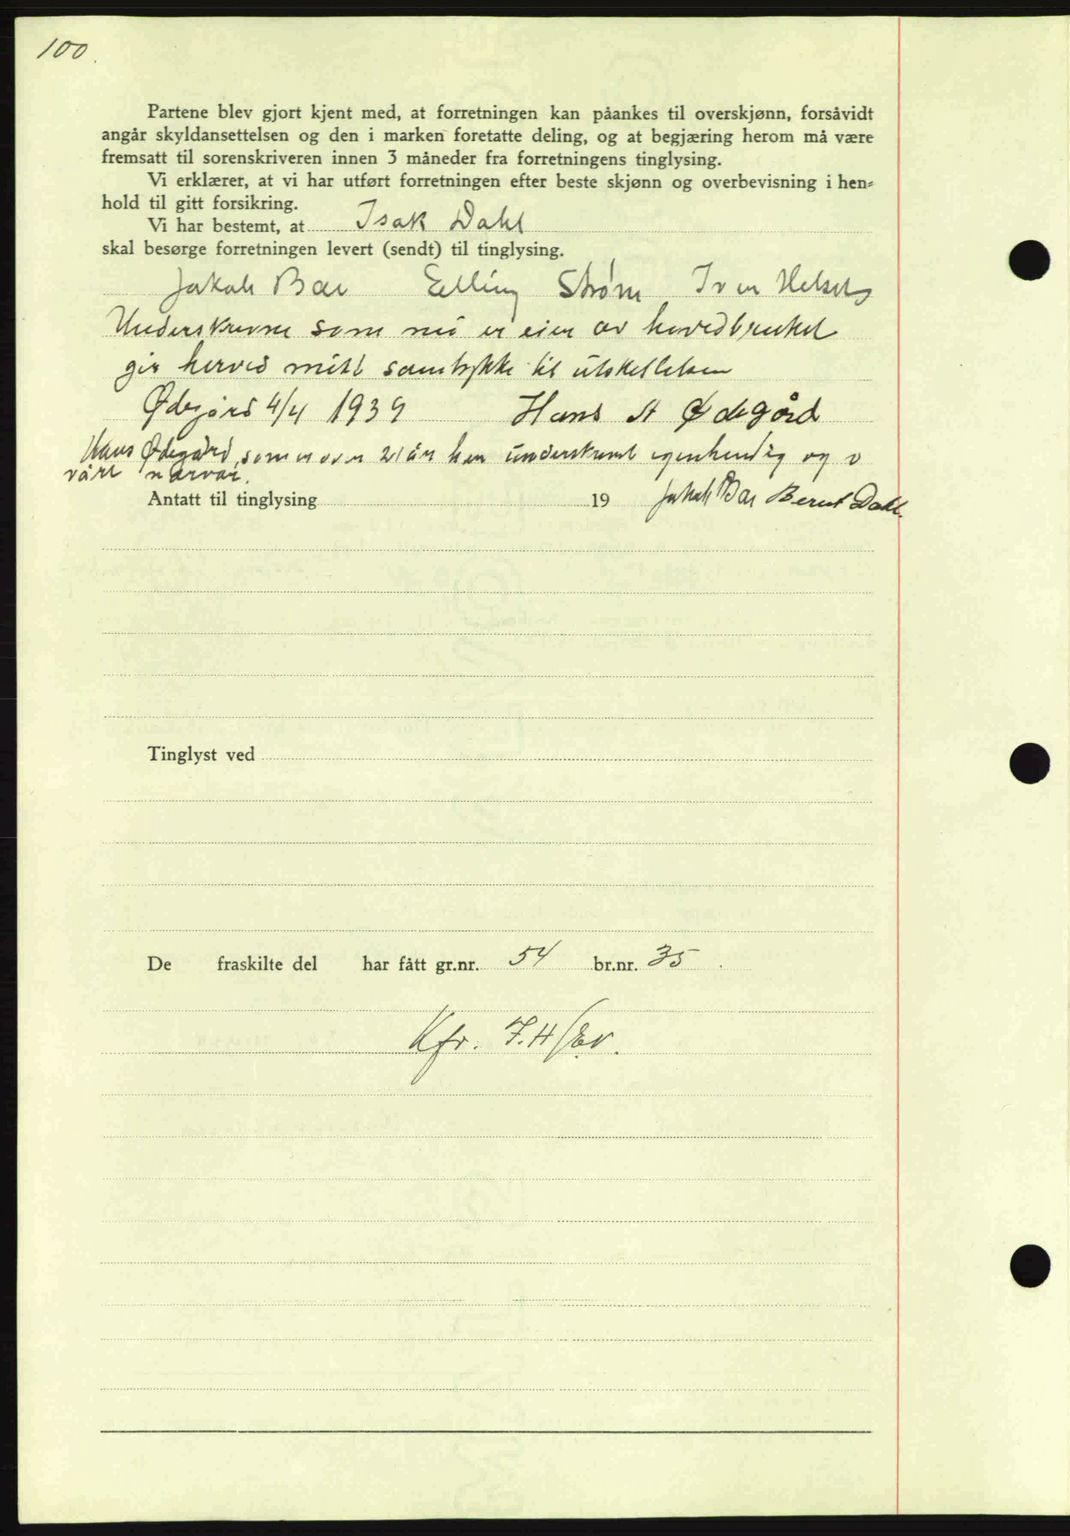 100.
Partene blev gjort kjent med, at forretningen kan påankes til overskjønn, forsåvidt
angår skyldansettelsen og den i marken foretatte deling, og at begjæring herom må være
fremsatt til sorenskriveren innen 3 måneder fra forretningens tinglysing.
Vi erklærer, at vi har utført forretningen efter beste skjønn og overbevisning i hen-
hold til gitt forsikring.
Vi har bestemt, at Isak Dahl
skal besørge forretningen levert (sendt) til tinglysing.
Jakob Bae Elling Strøm Iver
Underskrevne som nu er eier av hovedbruket
gir herved mitt samtykke til utskillelsen
Ødegård 4/4 1939 Hans A Ødegård
Hans Ødegård, som er over 21 år har underskrevet egenhendig og i
vårt nærvær.
Antatt til tinglysing 19 Jakob Bae Bernt Dahl.
Tinglyst ved
De fraskilte del har fått gr.nr. 54 br.nr. 35.
Kfr. F.H/E.V.